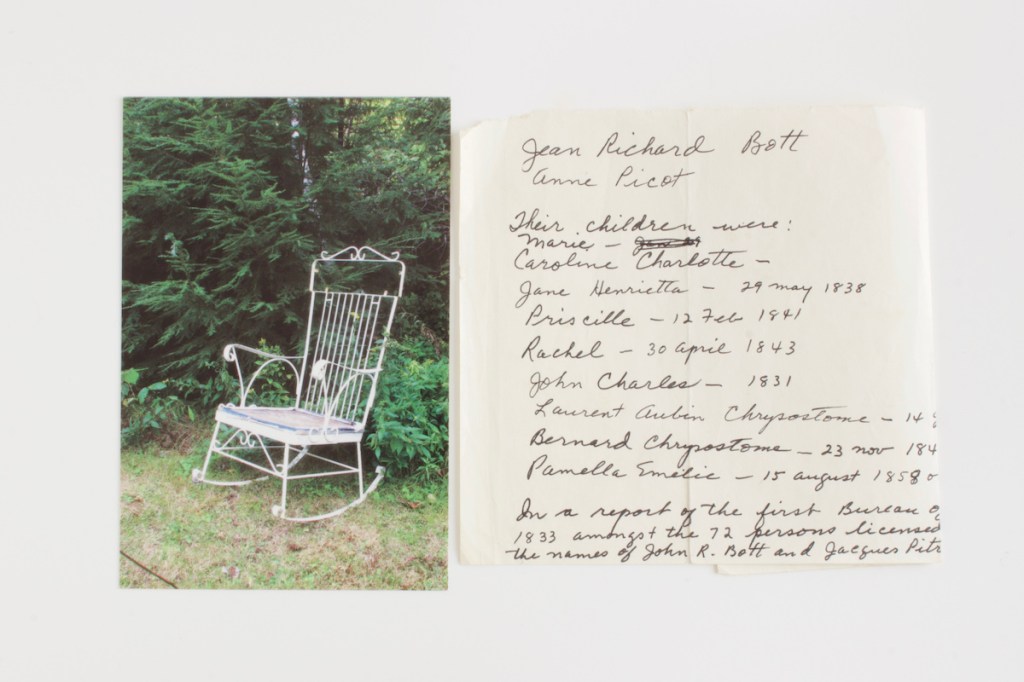 Jean Richard Bott
Anne Picot
Their children were:
Marie -
Caroline Charlotte -
Jane Henrietta - 29 may 1838
Priscille - 12 Feb 1841
Rachel - 30 april 1843
John Charles - 1831
Laurent Aubin Chrysostome - 14
Bernard Chrysostome - 23 nov 184
Pamella Emélie - 15 august 1858 o
In a report of the first Bureau
1833 amongst the 72 persons licensed
the names of John R. Bott and Jacques Pitr